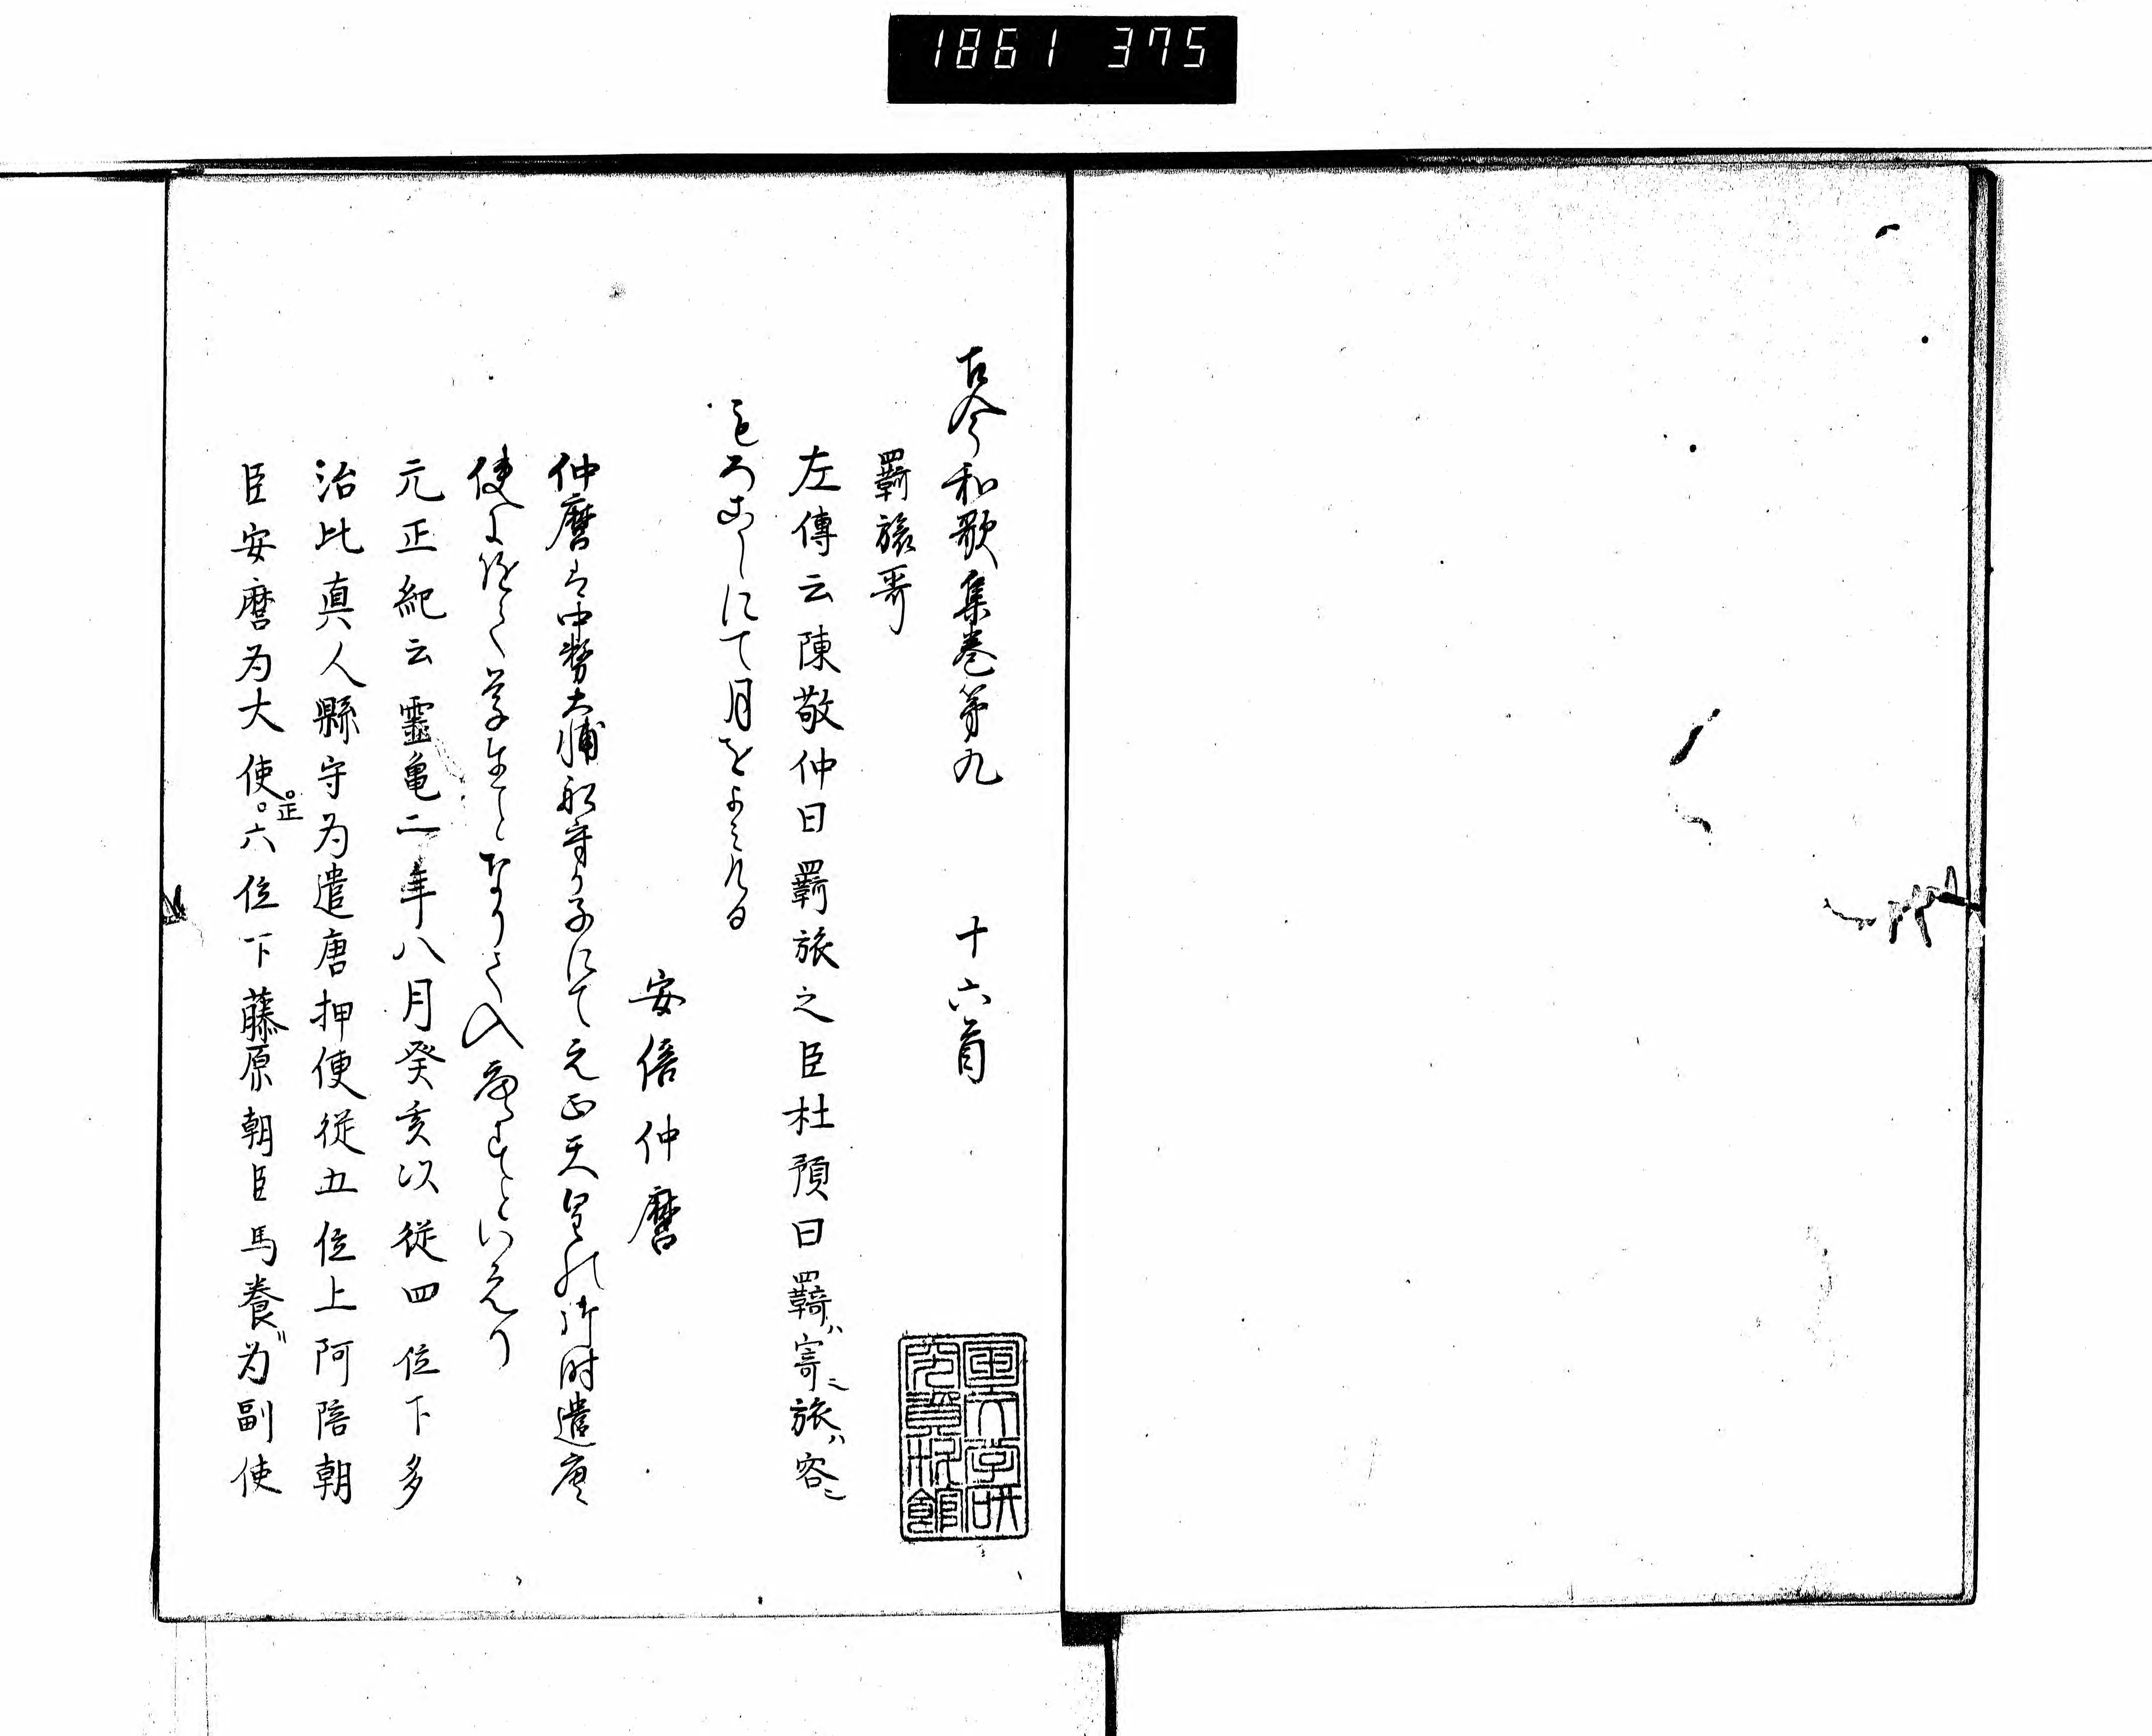 1861 375
古今和歌集巻第九　　十六首
羇旅哥
左傳云陳敬仲曰羇旅之臣杜預曰羇ハ寄ニ旅ハ客ニ
もろこしにて月をよみける
安倍仲麿
仲麿は中務大輔船守か子にて元正天皇の御時遣唐
使に随て学生となりて入唐すといへり
元正紀云靈亀二年八月癸亥以從四位下多
治比真人縣守为遣唐押使從五位上阿陪朝
臣安麿为大使。正六位下藤原朝臣馬養〃为副使
国文学研
究資料館